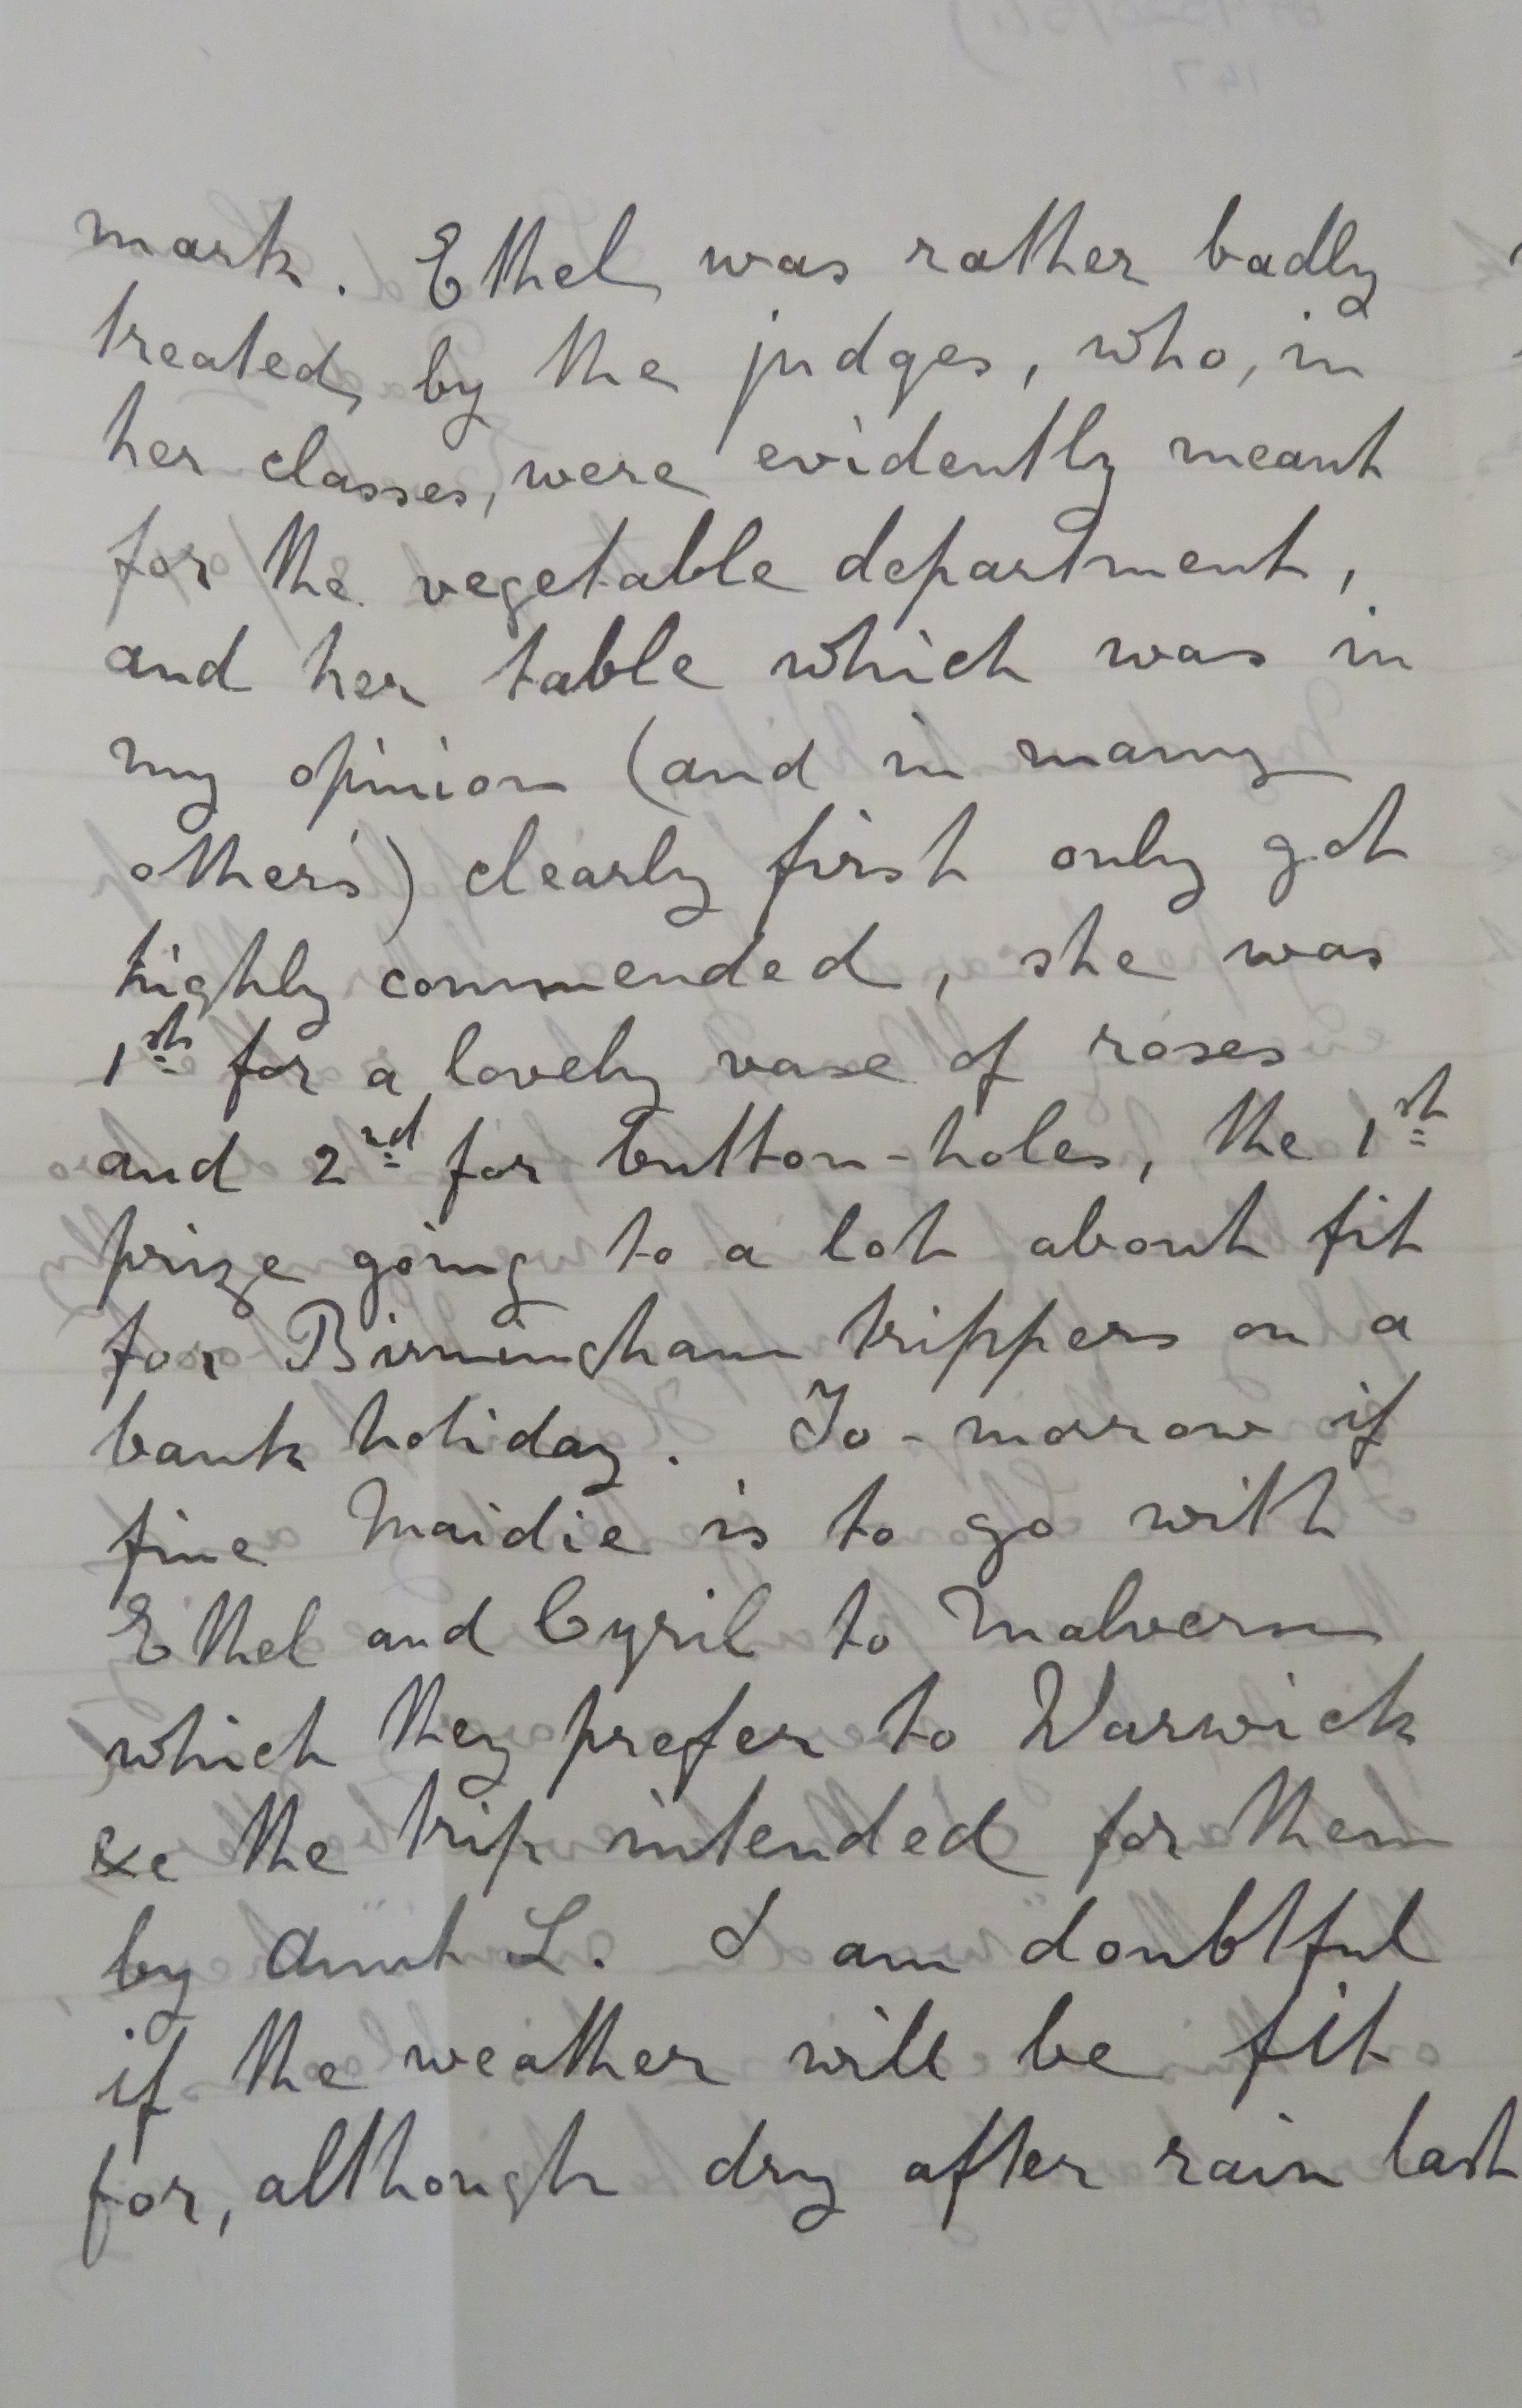 mark. Ethel was rather badly
treated by the judges, who, in
her classes, were evidently meant
for the vegetable department,
and her table which was in
my opinion (and in many
others') clearly first only got
highly commended, she was
1st for a lovely vase of roses
and 2nd for button-holes, the 1st
prize going to a lot about fit
for Birmingham trippers on a
bank holiday. To-morrow if
fine Maidie is to go with
Ethel and Cyril to Malvern
which they prefer to Warwick
&c the trip intended for them
by Aunt L. I am doubtful
if the weather will be fit
for, although dry after rain last